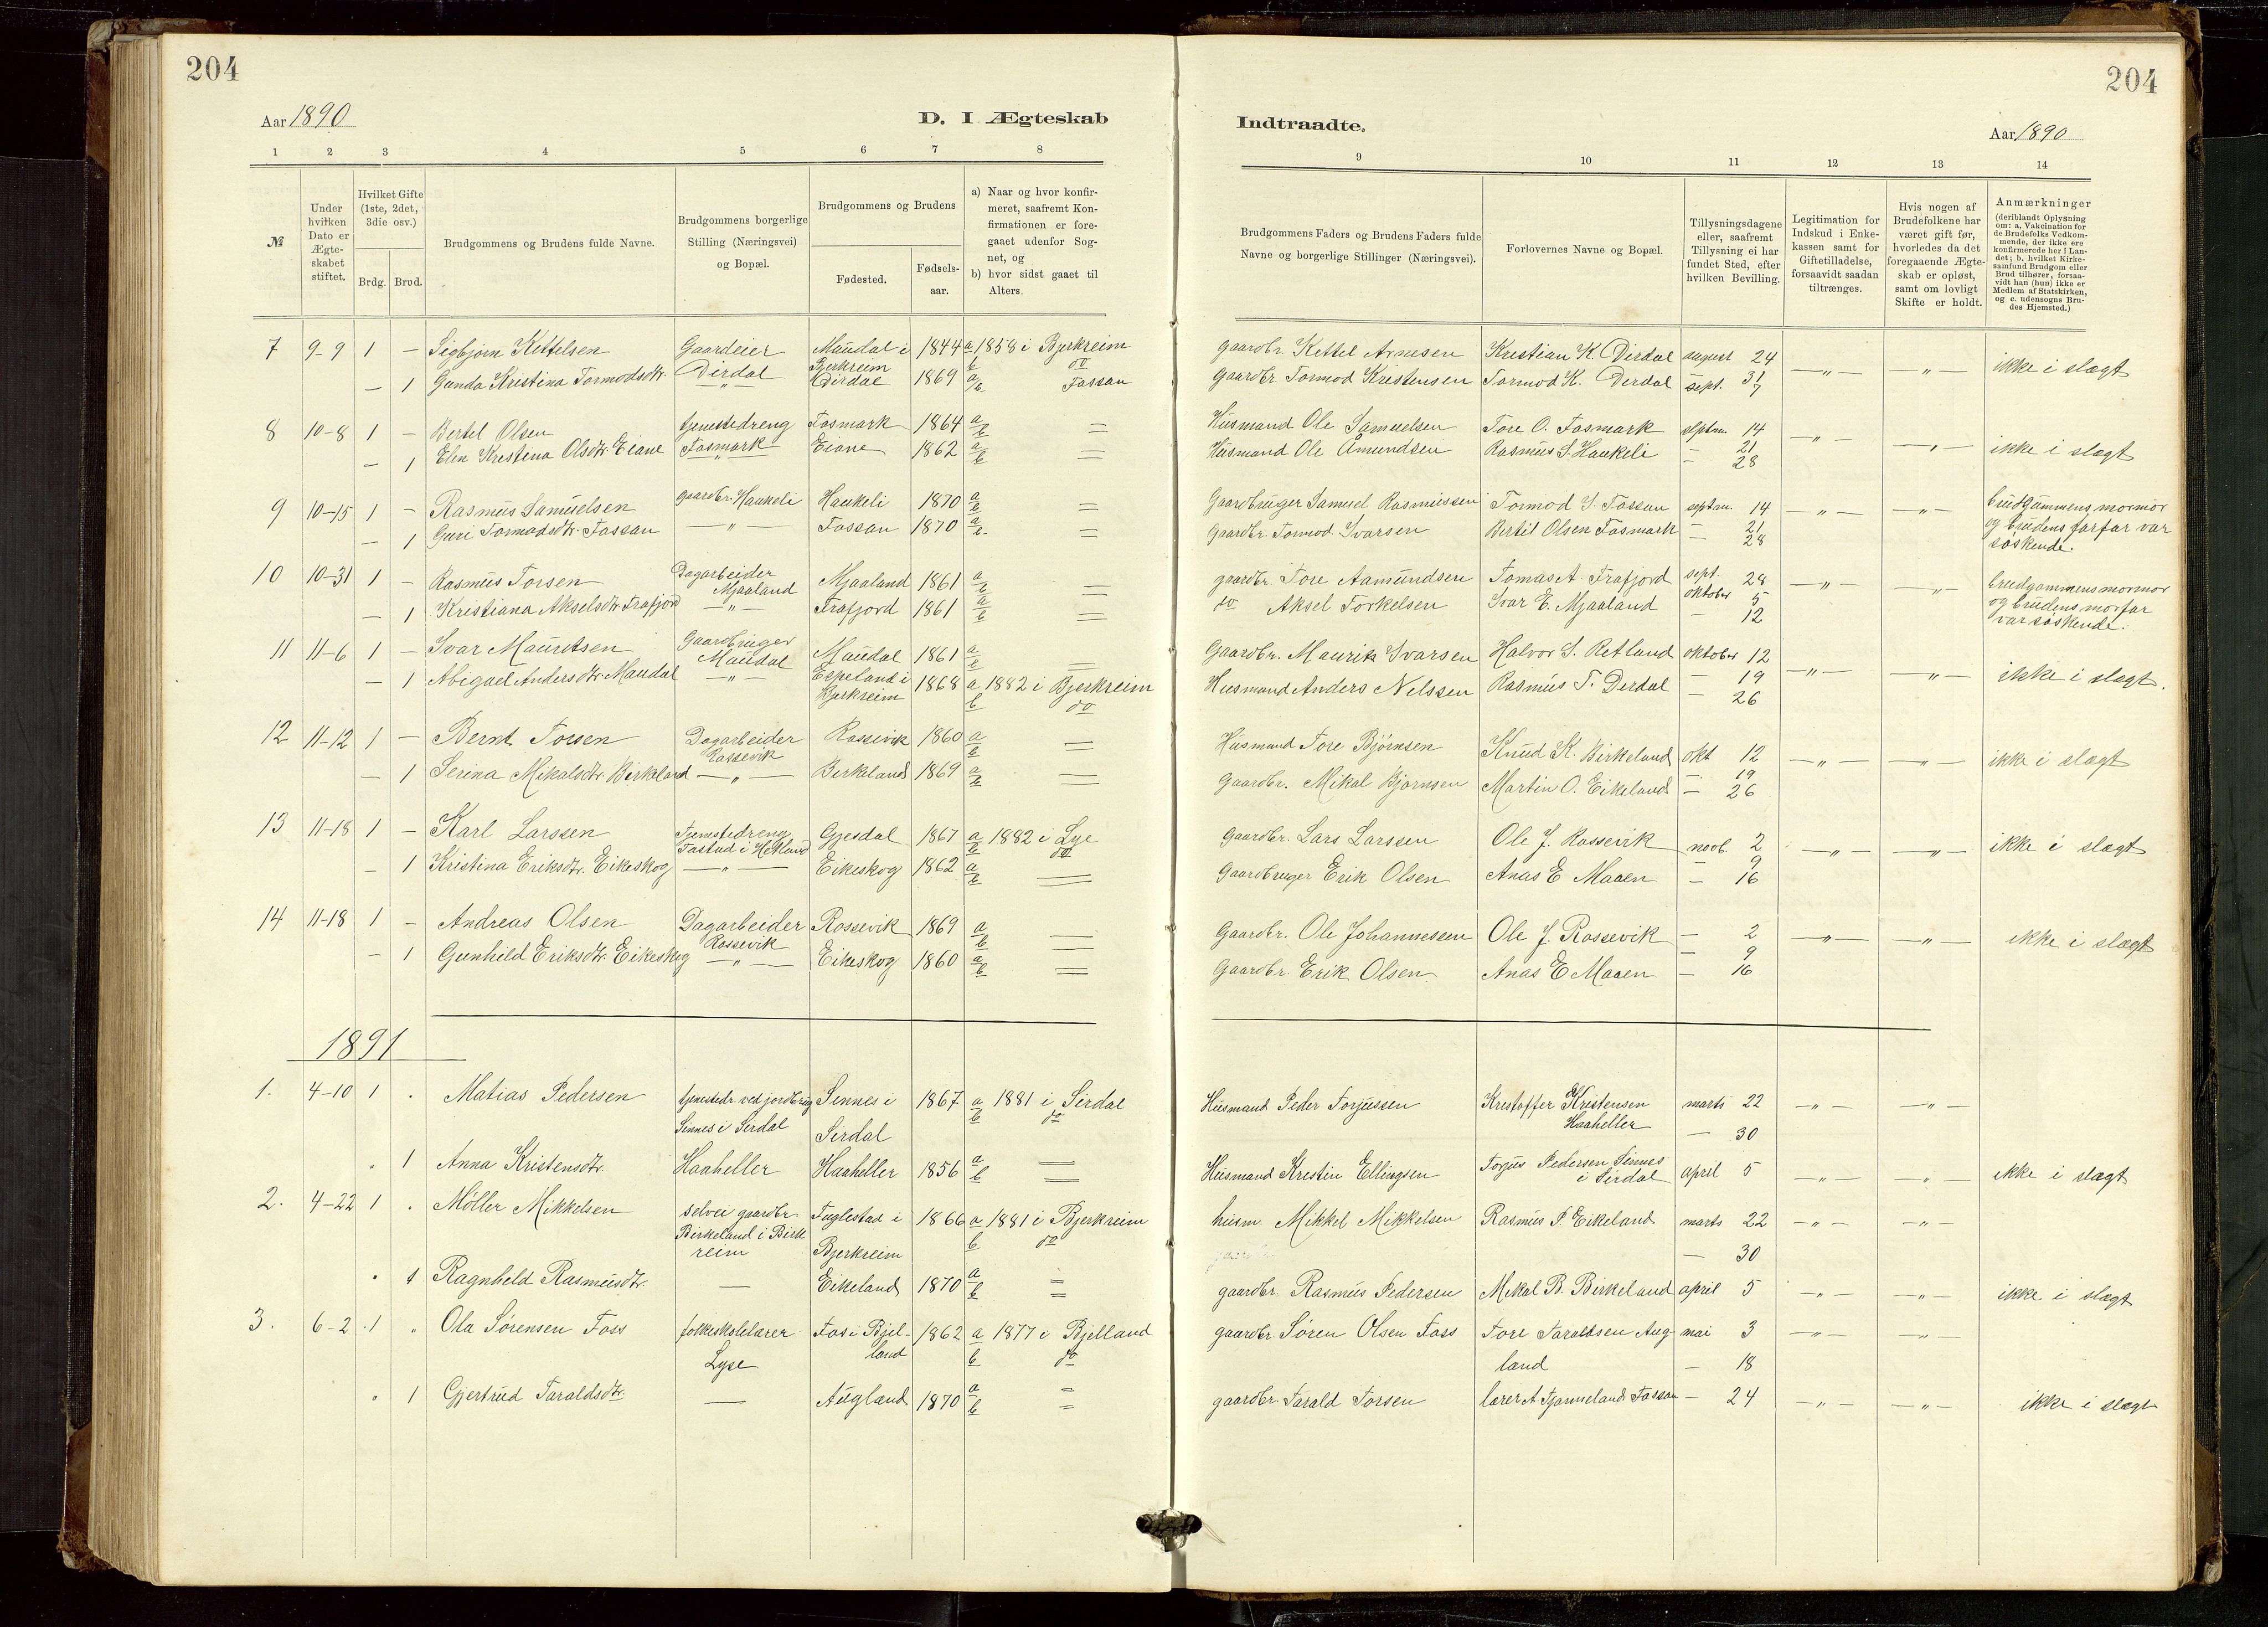 204
Aar 1890
D. I Ægteskab
1 2 3 4 5 6 7 8
№
Under hvilken Dato er Ægteskabet stiftet.
Hvilket Gifte (1ste, 2det, 3die osv.)
Brdg. Brud.
Brudgommens og Brudens fulde Navne.
Brudgommens borgerlige Stilling (Næringsvei) og Bopæl.
Brudgommens og Brudens
Fødested.
Fødselsaar.
a) Naar og hvor konfirmeret, saafremt Konfirmationen er foregaaet udenfor Sognet, og
b) hvor sidst gaaet til Alters.
7 9-9 1 — Sigbjørn Kittelsen Gaardeier Maudal i Bjerkreim 1844 a 1858 i Bjerkreim
b do
— 1 Gunda Kristina Tormodsdtr. Dirdal — " — Dirdal 1869 a b Fossan
8 10-8 1 — Bertel Olsen tjenestedreng Fosmark 1864 a b =
— 1 Elen Kristena Olsdtr. Eiane Fosmark — " — Eiane 1862 a b =
9 10-15 1 — Rasmus Samuelsen gaardbr. Haukeli Haukeli 1870 a b =
— 1 Guri Tormodsdtr. Fossan — " — Fossan 1870 a b =
10 10-31 1 — Rasmus Torsen Dagarbeider Mjaaland Mjaaland 1861 a b =
— 1 Kristiana Akselsdtr. Frafjord — " — Frafjord 1861 a b =
11 11-6 1 — Ivar Mauritsen Gaardbruger Maudal Maudal 1861 a b =
— 1 Abigael Andersdtr. Maudal — " — Espeland i Bjerkreim 1868 a 1882 i Bjerkreim
b do
12 11-12 1 — Bernt Torsen Dagarbeider Rossevik Rossevik 1860 a b =
— 1 Serina Mikalsdtr. Birkeland — " — Birkeland 1869 a b =
13 11-18 1 — Karl Larssen Tjenestedreng Tastad i Hetland Gjesdal 1867 a 1882 i Lye
b do
— 1 Kristina Eriksdtr. Eikeskog — " — Eikeskog 1862 a b =
14 11-18 1 — Andreas Olsen Dagarbeider Rossevik Rossevik 1869 a b =
— 1 Gunhild Eriksdtr. Eikeskog — " — Eikeskog 1860 a b =
1891
1. 4-10 1 . Matias Pedersen tjenestedr. ved jordbrug Sinnes i Sirdal Sinnes i Sirdal 1867 a 1881 i Sirdal
b do
" 1 Anna Kristensdtr. Haaheller Haaheller 1856 a b =
2. 4-22 1 . Møller Mikkelsen selvei gaardbr. Birkeland i Birkreim Fuglestad i Bjerkreim 1866 a 1881 i Bjerkreim
b do
" 1 Ragnhild Rasmusdtr. — Eikeland 1870 a b =
3. 6-2 1 " Ola Sørensen Foss folkeskolelærer Lyse Fos i Bjelland 1862 a 1877 i Bjelland
b do
" 1 Gjertrud Taraldsdtr. — Augland 1870 a b =
204
Indtraadte.
Aar 1890
9 10 11 12 13 14
Brudgommens Faders og Brudens Faders fulde Navne og borgerlige Stillinger (Næringsvei).
Forlovernes Navne og Bopæl.
Tillysningsdagene eller, saafremt Tillysning ei har fundet Sted, efter hvilken Bevilling.
Legitimation for Indskud i Enkekassen samt for Giftetilladelse, forsaavidt saadan tiltrænges.
Hvis nogen af Brudefolkene har været gift før, hvorledes da det foregaaende Ægteskab er opløst, samt om lovligt Skifte er holdt.
Anmærkninger (deriblandt Oplysning om: a, Vakcination for de Brudefolks Vedkommende, der ikke ere konfirmerede her i Landet; b. hvilket Kirkesamfund Brudgom eller Brud tilhører, forsaavidt han (hun) ikke er Medlem af Statskirken, og c. udensogns Brudes Hjemsted.)
gaardbr. Kittel Arnesen Kristian K. Dirdal august 24 — " — — " — ikke i slægt
31
gaardbr. Tormod Kristensen Tormod K. Dirdal sept. 7
Husmand Ole Samuelsen Tore O. Fosmark septm. 14 — " — — " — ikke i slægt
— 21
Husmand Ole Amundsen Rasmus S. Haukeli — 28
Gaardbruger Samuel Rasmussen Tormod I. Fossan septm. 14 — " — — " — brudgummens mormor og brudens farfar var søskende.
— 21
gaardbr. Tormod Ivarsen Bertil Olsen Fosmark — 28
gaardbr. Tore Aamundsen Tomas A. Frafjord sept. 28 — " — — " — brudgommens mormor og brudens morfar var søskende.
oktober 5
do Aksel Torkelsen Ivar E. Mjaaland — 12
Gaardbr. Maurits Ivarsen Halvor S. Retland oktober 12 — " — — " — ikke i slægt.
— 19
Husmand Anders Nilssen Rasmus T. Dirdal — 26
Husmand Tore Bjørnsen Knud K. Birkeland okt 12 — " — — " — ikke i slægt
— 19
Gaardbr. Mikal Bjørnsen Martin O. Eikeland — 26
Gaardbr. Lars Larssen Ole J. Rossevik novb. 2 — " — — " — ikke i slægt
— 9
Gaardbruger Erik Olsen Anas E Maaen — 16
Gaardbr. Ole Johannesen Ole J. Rossevik — 2 — " — — " — ikke i slægt
— 9
Gaardbr. Erik Olsen Anas E Maaen — 16
Husmand Peder Torjussen Kristoffer Kristensen Haaheller marts 22 — " — — " —
— 30
Husmand Kristin Ellingsen Torjus Pedersen Sinnes i Sirdal april 5 — " — — " — ikke i slægt
husm. Mikkel Mikkelsen Rasmus P. Eikeland marts 22 — " — — " —
— 30
gaardbr. Rasmus Pedersen Mikal B. Birkeland april 5 — " — — " — ikke i slægt
gaardbr. Søren Olsen Foss Tore Taraldsen Augland mai 3 — " — — " —
— 18
gaardbr. Tarald Torsen lærer A. Tjørmeland Fossan — 24 — " — — " — ikke i slægt